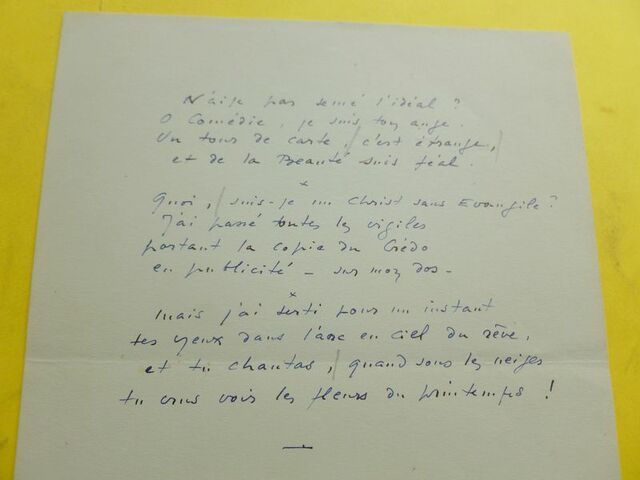 N'ai-je pas semé l'idéal ?
O Comédie, je suis ton ange.
Un tour de carte, c'est étrange,
et de la Beauté suis féal.
x
Quoi, suis-je un Christ sans Evangile ?
J'ai passé toutes les vigiles
portant la copie du Crédo
en publicité - sur mon dos -
x
Mais j'ai serti pour un instant
tes yeux dans l'arc en ciel du rêve,
et tu chantas, quand sous les neiges
tu crus voir les fleurs du printemps !
—